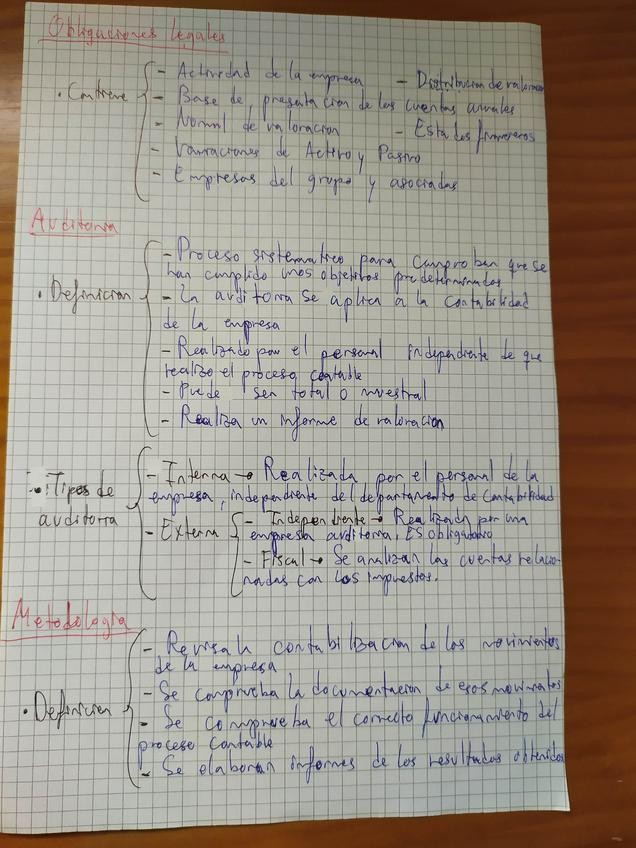 Obligaciones legales
- Actividad de la empresa - Distribucion de valores
· Contiene - Base de presentacion de las cuentas anuales
- Normal de valoracion - Estados financieros
- Variaciones de Activo y Pasivo
- Empresas del grupo y asociadas
Auditoria
- Proceso sistematico para comprobar que se
han cumplido unos objetivos predeterminados
· Definicion - La auditoria se aplica a la contabilidad
de la empresa
- Realizado por el personal independiente de que
realizo el proceso contable
- Puede ser total o muestral
- Realiza un informe de valoracion
· Tipos de - Interna → Realizada por el personal de la
empresa, independiente del departamento de contabilidad
auditoria - Externa - Independiente → Realizada por una
empresa auditoria. ES obligatorio
- Fiscal → Se analizan las cuentas relacio-
nadas con los impuestos.
Metodologia
- Revisa la contabilizacion de los movimientos
de la empresa
- Se comprueba la documentacion de esos movimientos
· Definicion - Se comprueba el correcto funcionamiento del
proceso contable
- Se elaboran informes de los resultados obtenidos